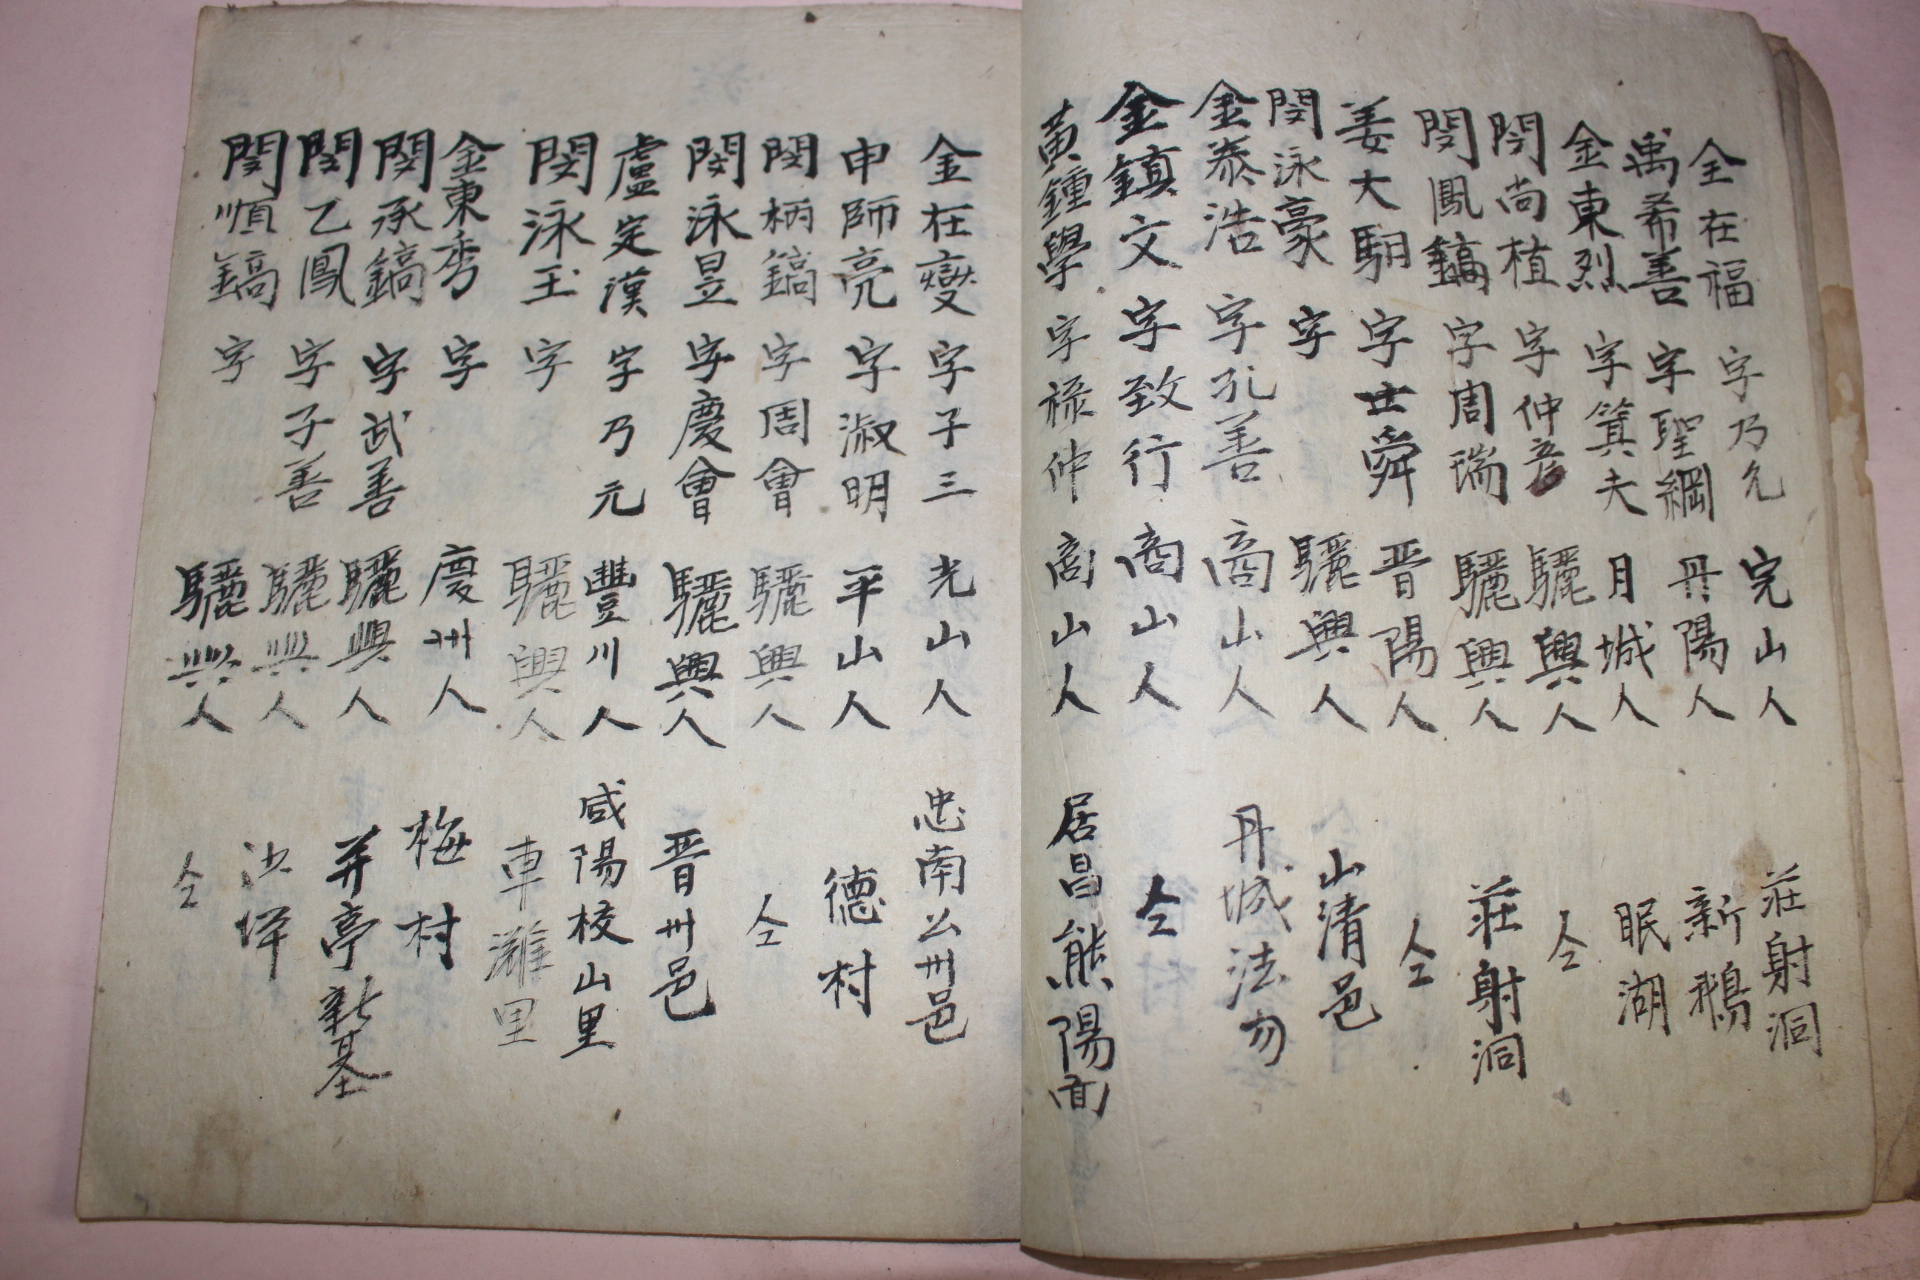 全在福 字乃允 完山人 莊射洞
禹希善 字聖綱 丹陽人 新鵝
金東烈 字箕夫 月城人 眠湖
閔尚植 字仲彦 驪興人 仝
閔鳳鎬 字周瑞 驪興人 莊射洞
姜大馹 字士舜 晋陽人 仝
閔泳豪 字 驪興人 山清邑
金泰浩 字孔善 商山人 丹城法勿
金鎮文 字致行 商山人 仝
黃鍾學 字祿仲 商山人 居昌熊陽面
金在燮 字子三 光山人 忠南公州邑
申師亮 字淑明 平山人 德村
閔柄鎬 字周會 驪興人 仝
閔泳昱 字慶會 驪興人 晋州邑
盧定漢 字乃元 豐川人 咸陽校山里
閔泳玉 字 驪興人 車灘里
金東秀 字 慶州人 梅村
閔承鎬 字武善 驪興人 并亭新基
閔乙鳳 字子善 驪興人
閔順鎬 字 驪興人 仝